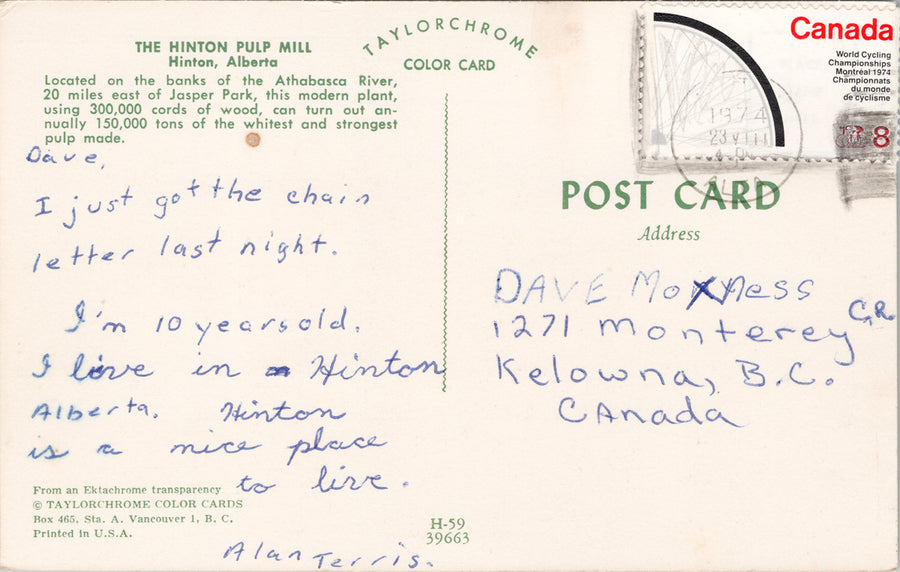 THE HINTON PULP MILL
Hinton, Alberta
Located on the banks of the Athabasca River,
20 miles east of Jasper Park, this modern plant,
using 300,000 cords of wood, can turn out an-
nually 150,000 tons of the whitest and strongest
pulp made.
TAYLORCHROME
COLOR CARD
Canada
World Cycling
Championships
Montréal 1974
Championnats
du monde
de cyclisme
8
1974
23 VIII
Dave,
I just got the chain
letter last night.
I'm 10 years old.
I live in Hinton
Alberta. Hinton
is a nice place
to live.
Alan Terris.
POST CARD
Address
DAVE Moxness
1271 Monterey CR.
Kelowna, B.C.
CAnada
From an Ektachrome transparency
© TAYLORCHROME COLOR CARDS
Box 465, Sta. A. Vancouver 1, B. C.
Printed in U.S.A.
H-59
39663